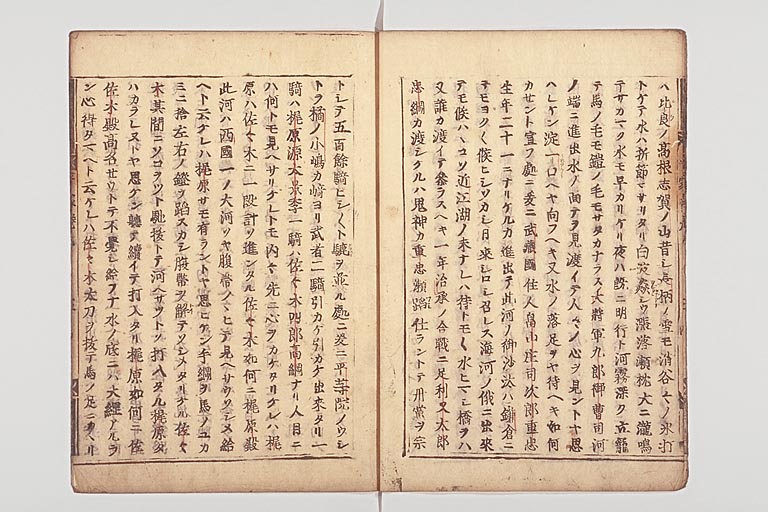 ハ比良ノ高根志賀ノ山昔シ長柄ノ雪モ消谷々ノ氷打
トケテ水ハ折節マサリタリ白浪シウ漲落瀬枕大ニ瀧鳴
テサカマク水モ早カリケリ夜ハ既ニ明行ト河霧深ク立籠
テ馬ノ毛モ鎧ノ毛モサタカナラス大將軍九郎御曹司河
ノ端ニ進出水ノ面テヲ見渡イテ人々ノ心ヲ見ントヤ思
ヘレケン淀一口ヘヤ向フヘキ又水ノ落足ヲヤ待ヘキ如何
カセント宣フ處ニ爰ニ武藏國住人畠山庄司次郎重忠
生年二十一ニナリケルカ進出テ此河ノ御沙汰ハ鎌倉ニ
テモヨク〱候ヒシソカシ日来シロシ召レヌ海河ノ俄ニ出來
テモ候ハヽコソ近江湖ノ末ナレハ待トモ〱水ヒマシ橋ヲハ
又誰カ渡イテ參ラスヘキ一年治承ノ合戰ニ足利又太郎
忠綱カ渡シケルハ鬼神カ重忠瀬蹈仕ラントテ丹黨ヲ宗
トシテ五百餘騎ヒシ〱ト轡ヲ並ル處ニ爰ニ平等院ノウシ
トラ橘ノ小嶋カ崎ヨリ武者二騎引カケ引カケ出來タリ一
騎ハ梶原源太景季一騎ハ佐々木四郎髙綱ナリ人目ニ
ハ何トモ見ヘサリケレトモ内々先ニ心ヲカケタリケレハ梶
原ハ佐々木ニ一段計ソ進ンタル佐々木如何ニ梶原殿
此河ハ西國一ノ大河ソヤ腹帯ノノヒテ見ヘサウソシメ給
ヘト云ケレハ梶原サモ有ラントヤ思ヒケン手綱ヲ馬ノユカ
ミニ捨左右ノ鐙ヲ蹈スカシ腹帯ヲ解テソシメタリケル佐々
木其間ニソコヲツト馳抜テ河ヘサツト打入タル梶原タ
ハカラレヌトヤ思ケン軈テ續イテ打入タリ梶原如何ニ佐
佐木殿高名セウトテ不覺シ給フナ水ノ底ニハ大縄アルラ
ン心得タマヘト云ケレハ佐々木太刀ヲ抜テ馬ノ足ニカヽリ